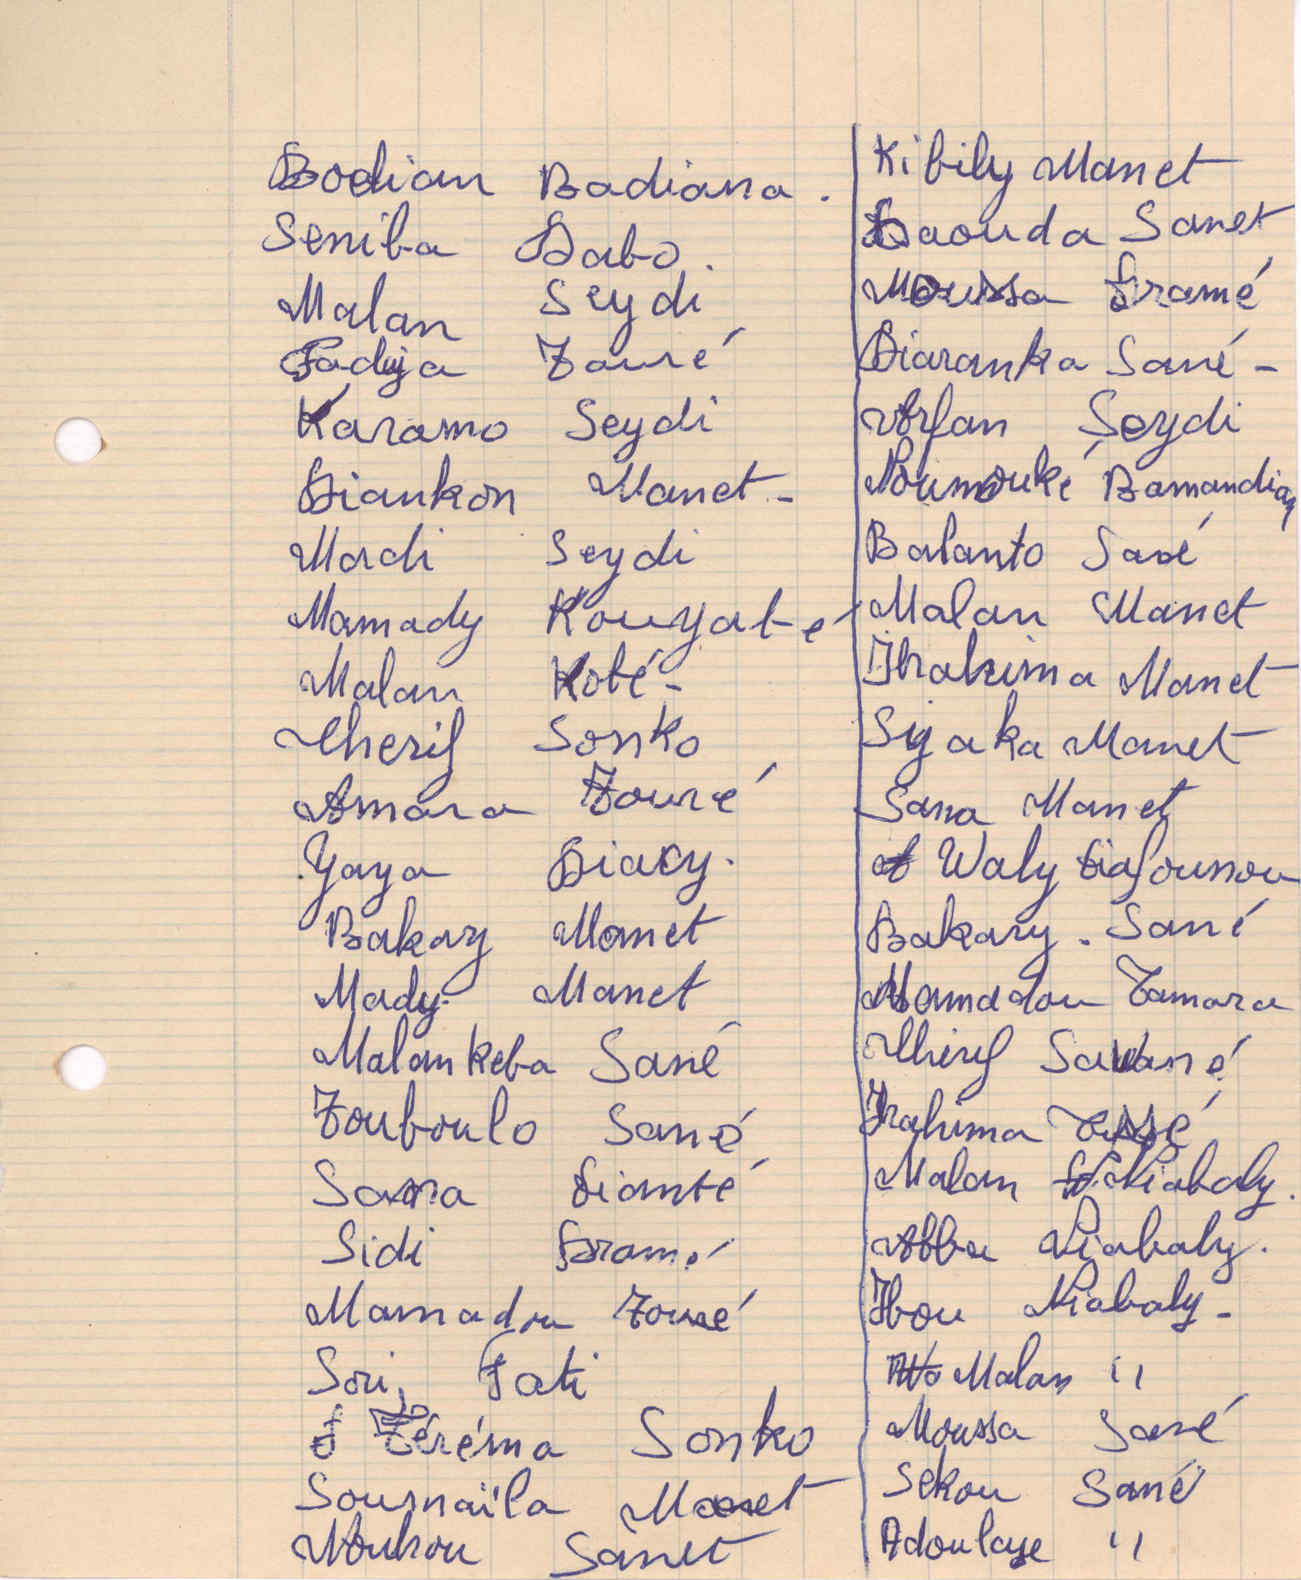 Bodian Badiana.
Seniba Dabo.
Malan Seydi
Fadiya Touré
Karamo Seydi
Diankon Manet -
Mordi Seydi
Mamady Kouyaté
Malan Kobé -
Cherif Sonko
Amara Touré
Yaya Diacy.
Bakary Manet
Mady. Manet
Malankeba Sané
Touboulo Sané
Sana Dianté
Sidi Dramé
Mamadou Touré
Sori Fati
Téréma Sonko
Soumaïla Manet
Sanet
Kibily Manet
Daouda Sanet
Moussa Dramé
Diaranka Sané -
Arfan Seydi
Noumouké Bamandian
Balanto Sané
Malan Manet
Ibrahima Manet
Siyaka Manet
Sana Manet
Waly Diafounou
Bakary. Sané
Mamadou Tamara
Cherif Savané
Irahima
Malan Niabaly.
Abba Niabaly.
Ibou Niabaly -
Malan "
Moussa Sané
Sekou Sané
Adoulaye "